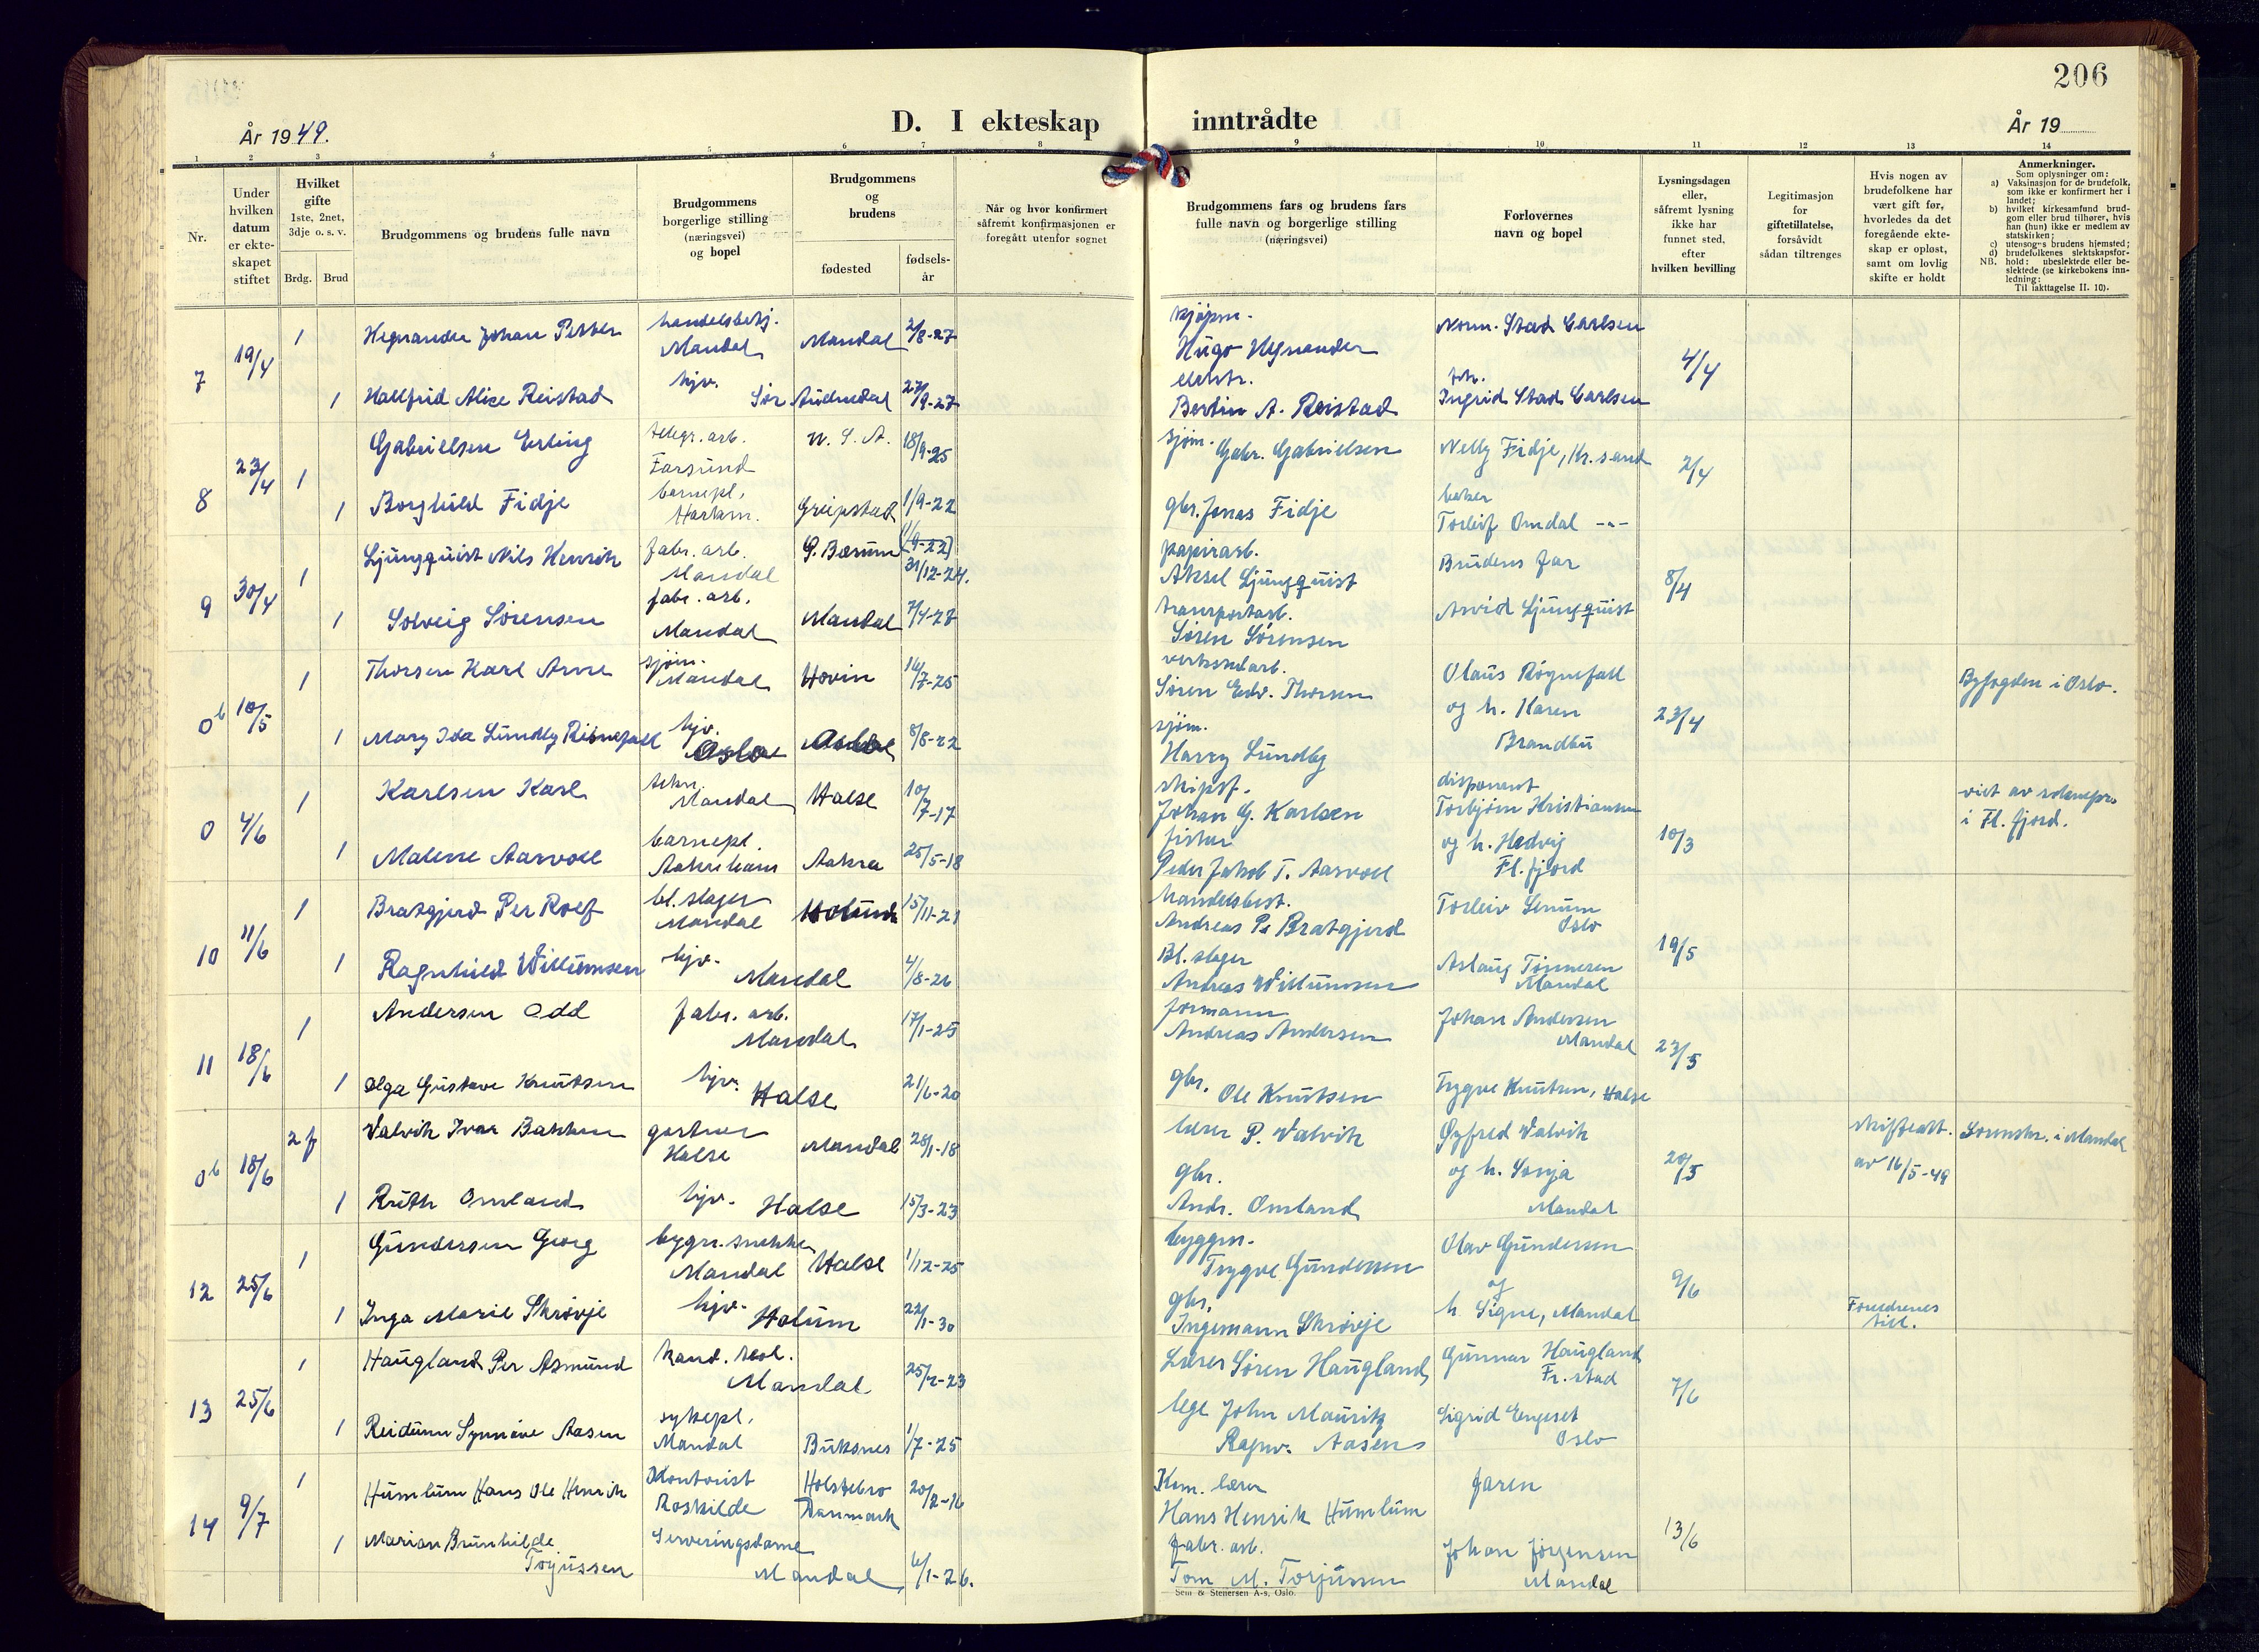 206
År 1949.
D. I ekteskap inntrådte
År 19
1 2 3 4 5 6 7 8 9 10 11 12 13 14
Nr.
Under hvilken datum er ekteskapet stiftet
Hvilket gifte 1ste, 2net, 3dje o. s. v.
Brdg. Brud
Brudgommens og brudens fulle navn
Brudgommens borgerlige stilling (næringsvei) og bopel
Brudgommens og brudens
fødested
fødselsår
Når og hvor konfirmert såfremt konfirmasjonen er foregått utenfor sognet
Brudgommens fars og brudens fars fulle navn og borgerlige stilling (næringsvei)
Forlovernes navn og bopel
Lysningsdagen eller, såfremt lysning ikke har funnet sted, efter hvilken bevilling
Legitimasjon for giftetillatelse, forsåvidt sådan tiltrenges
Hvis nogen av brudefolkene har vært gift før, hvorledes da det foregående ekteskap er opløst, samt om lovlig skifte er holdt
Anmerkninger.
Som oplysninger om:
a) Vaksinasjon for de brudefolk, som ikke er konfirmert her i landet;
b) hvilket kirkesamfund brudgom eller brud tilhører, hvis han (hun) ikke er medlem av statskirken;
c) utensogns brudens hjemsted;
d) brudefolkenes slektskapsforhold: ubeslektede eller beslektede (se kirkebokens innledning:
NB. Til iakttagelse II. 10).
7 19/4 1 Hegnander Johan Petter handelsbetj. Mandal Mandal 2/8-27 kjøpm. Hugo Hegnander Norm. Stad Carlsen 4/4
1 Hallfrid Alice Reistad hjv. Sør Audnedal 27/9-27 elektr. Bertin A. Reistad frk. Ingrid Stad Carlsen
8 23/4 1 Gabrielsen Erling telegr. arb. Farsund U. S. A. 18/9-25 sjøm. Gabr. Gabrielsen Nelly Fidje, Kr.sand 2/4
1 Borghild Fidje barnepl. Greipstad 1/9-22 gbr. Jonas Fidje baker Torleif Omdal -"-
9 30/4 1 Ljungquist Nils Henrik fabr. arb. Mandal Ø. Bærum (1/9-22) 31/12-24. papirarb. Aksel Ljungquist Brudens far 8/4
1 Solveig Sørensen fabr. arb. Mandal Mandal 7/4-28 transportarb. Søren Sørensen Arvid Ljungquist
0b 10/5 1 Thorsen Karl Arne sjøm. Mandal Hovin 16/7-25 verkstedarb. Søren Edv. Thorsen Olaus Røgnefall 23/4 Byfogden i Oslo.
1 Mary Ida Lundby hjv. Oslo 8/8-22 sjøm. Harry Lundby og h. Karen Brandbu
0 4/6 1 Karlsen Karl Mandal Halse 10/7-17 skipsf. Johan G. Karlsen disponent Torbjørn Kristiansen 10/3 viet av soknepr. i Fl. fjord.
1 Malene Aasvoll barnepl. Aakra 25/5-18 fisker Peder Jakob T. Aasvoll og h. Hedvig Fl. fjord
10 11/6 1 Bratgjerd Per Rolf bl. slager Mandal 15/11-21 handelsbest. Andreas P. Bratgjerd Torleiv Lenum Oslo 19/5
1 Ragnhild Willumsen hjv. Mandal 4/8-26 Bl. slager Andreas Willumsen Aslaug Tønnesen Mandal
11 18/6 1 Andersen Odd fabr. arb. Mandal 17/1-25 formann Andreas Andersen Johan Andersen Mandal 23/5
1 Olga Gustava Knutsen hjv. Halse 21/6-20 gbr. Ole Knutsen Trygve Knutsen, Halse
0b 18/6 2 f Valvik Ivar Bakken gartner Halse Mandal 28/1-18 lærer P. Valvik Øyfred Valvik 20/5 skifteatt. av 16/5-49 Sorenskr. i Mandal
1 Ruth Omland hjv. Halse 15/3-23 gbr. Andr. Omland og h. Sonja Mandal
12 25/6 1 Gundersen Georg bygn. snekker Mandal Halse 1/12-25 byggm. Trygve Gundersen Olav Gundersen 9/6
1 Inga Marie Skrøvje hjv. Holum 22/1-30 gbr. Ingemann Skrøvje og h. Signe, Mandal Foreldrenes till.
13 25/6 1 Haugland Per Asmund kand. teol. Mandal 25/2-23 Lærer Søren Haugland Gunnar Haugland Fr. stad 7/6
1 Reidunn Synnøve Aasen sykepl. Mandal Buksnes 1/7-25 lege John Mauritz Ragnv. Aasen Sigrid Engeset Oslo
14 9/7 1 Humlum Hans Ole Henrik Kontorist Roskilde Holstebro Danmark 20/2-16 Kom. lærer Hans Henrik Humlum Faren 13/6
1 Marian Brunhilde Torjussen Serveringsdame Mandal 6/1-26. Fabr. arb. Tom M. Torjussen Johan Jørgensen Mandal
Sem & Stenersen A-s, Oslo.